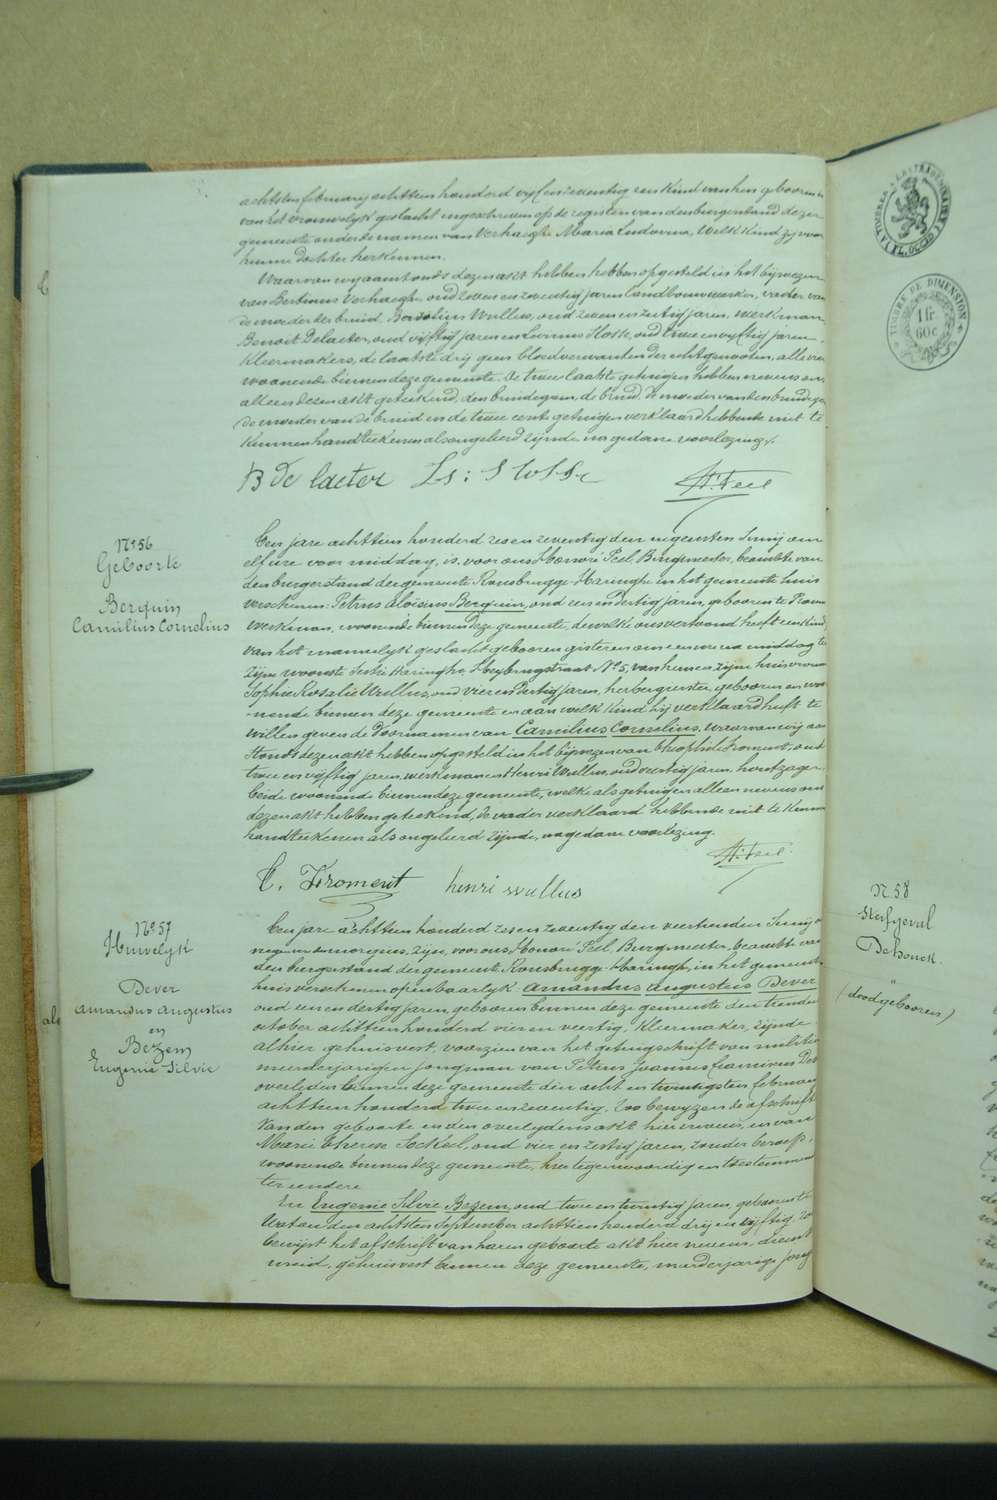 achtsten february achttien honderd vyf en zeventig een kind van hen geboren is
van het vrouwelyk geslacht ingeschreven op de registers van den burgerstand dezer
gemeente onder de namen van Verhaeghe Maria Ludovica, welk kind zy voor
hunne dochter herkennen.
Waarvan wy aanstonds dezen akt hebben opgesteld in het bywezen
van Bertinus Verhaeghe, oud zeven en zeventig jaren landbouwwerker, vader van
de moeder der bruid, Wullus, oud zeven en zestig jaren, werkman
Benoit Delaeter, oud vyftig jaren en Livinus Hosse, oud twee en vyftig jaren
kleermakers, de laatste dry geen bloedverwanten der echtgenooten, alle vier
woonende binnen deze gemeente. De twee laatste getuigen hebben nevens ons
alleen dezen akt geteekend, den bruidegom, de bruid, de moeder van den bruidegom
de moeder van de bruid en de twee eerste getuigen verklaard hebbende niet te
kunnen handteekenen als ongeleerd zynde na gedane voorlezing.
B De laeter Ls: Hosse H. Peel
N° 56
Geboorte
Berquin
Camilius Cornelius
Ten jare achttien honderd zes en zeventig den negensten Juny om
elf ure voor middag, is voor ons Honoré Peel, Burgmeester, beambte van
den burgerstand der gemeente Rousbrugge-Haringhe in het gemeente huis
verschenen Petrus Aloisius Berquin, oud zes en dertig jaren, geboren te Proven
werkman, woonende binnen deze gemeente, dewelke ons vertoond heeft een kind
van het mannelyk geslacht geboren gisteren om een ure na middag te
zyne woonste sectie Haringhe, Heybrugstraat N° 5, van hem en zyne huisvrouw
Sophie Rosalie Wullus, oud vier en dertig jaren, herbergierster, geboren en woo-
-nende binnen deze gemeente en aan welk kind hy verklaard heeft te
willen geven de voornamen van Camilius Cornelius, waarvan wy aan
stonds dezen akt hebben opgesteld in het bywezen van Froment, oud
twee en vyftig jaren, werkman en Henri Wullus, oud veertig jaren, houtzager,
beide woonende binnen deze gemeente, welke als getuigen alleen nevens ons
dezen akt hebben geteekend, de vader verklaard hebbende niet te kunnen
handteekenen als ongeleerd zynde, na gedane voorlezing.
H. Peel
C. Froment henri wullus
N° 57
Huwelyk
Dever
Amandus Augustus
en
Bezem
Eugenie Silvie
Ten jare achttien honderd zes en zeventig den veertienden Juny om
negen ure 's morgens, zyn voor ons Honoré Peel, Burgmeester, beambte van
den burgerstand der gemeente Rousbrugge-Haringhe, in het gemeente
huis verschenen openbaarlyk Amandus Augustus Dever
oud een en dertig jaren, geboren binnen deze gemeente den tienden
october achttien honderd vier en veertig, kleermaker, zynde
alhier gehuisvest, voorzien van het getuigschrift van militie
meerderjarigen jongman van Petrus Joannes Dever
overleden binnen deze gemeente den acht en twintigsten february
achttien honderd twee en zeventig, zoo bewyzen de afschriften
van den geboorte en den overlydens akt hier nevens, en van
Marie Therese Sockeel, oud vier en zestig jaren, zonder beroep,
woonende binnen deze gemeente, hier tegenwoordig en toestemmen
ter eendere
En Eugenie Silvie Bezem, oud twee en twintig jaren geboren te
Watou den achtsten September achttien honderd dry en vyftig, zoo
bewyst het afschrift van haren geboorte akt hier nevens, dienst
meid, gehuisvest binnen deze gemeente, meerderjarige jong
TIMBRE DE DIMENSION
1 fr
60 c
N. 58
Sterfgeval
Dehouck.
(doodgeboren)